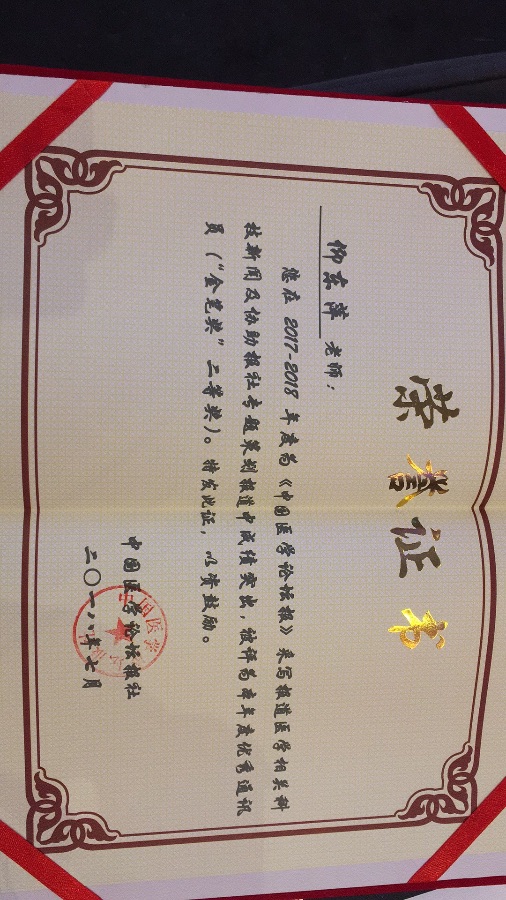 荣誉证书
柳东萍 老师：
您在 2017-2018 年度为《中国医学论坛报》采写报道医学相关科
技新闻及协助报社专题策划报道中成绩突出，被评为本年度优秀通讯
员（“金笔奖”二等奖）。特发此证，以资鼓励。
中国医学论坛报社
二〇一八年七月